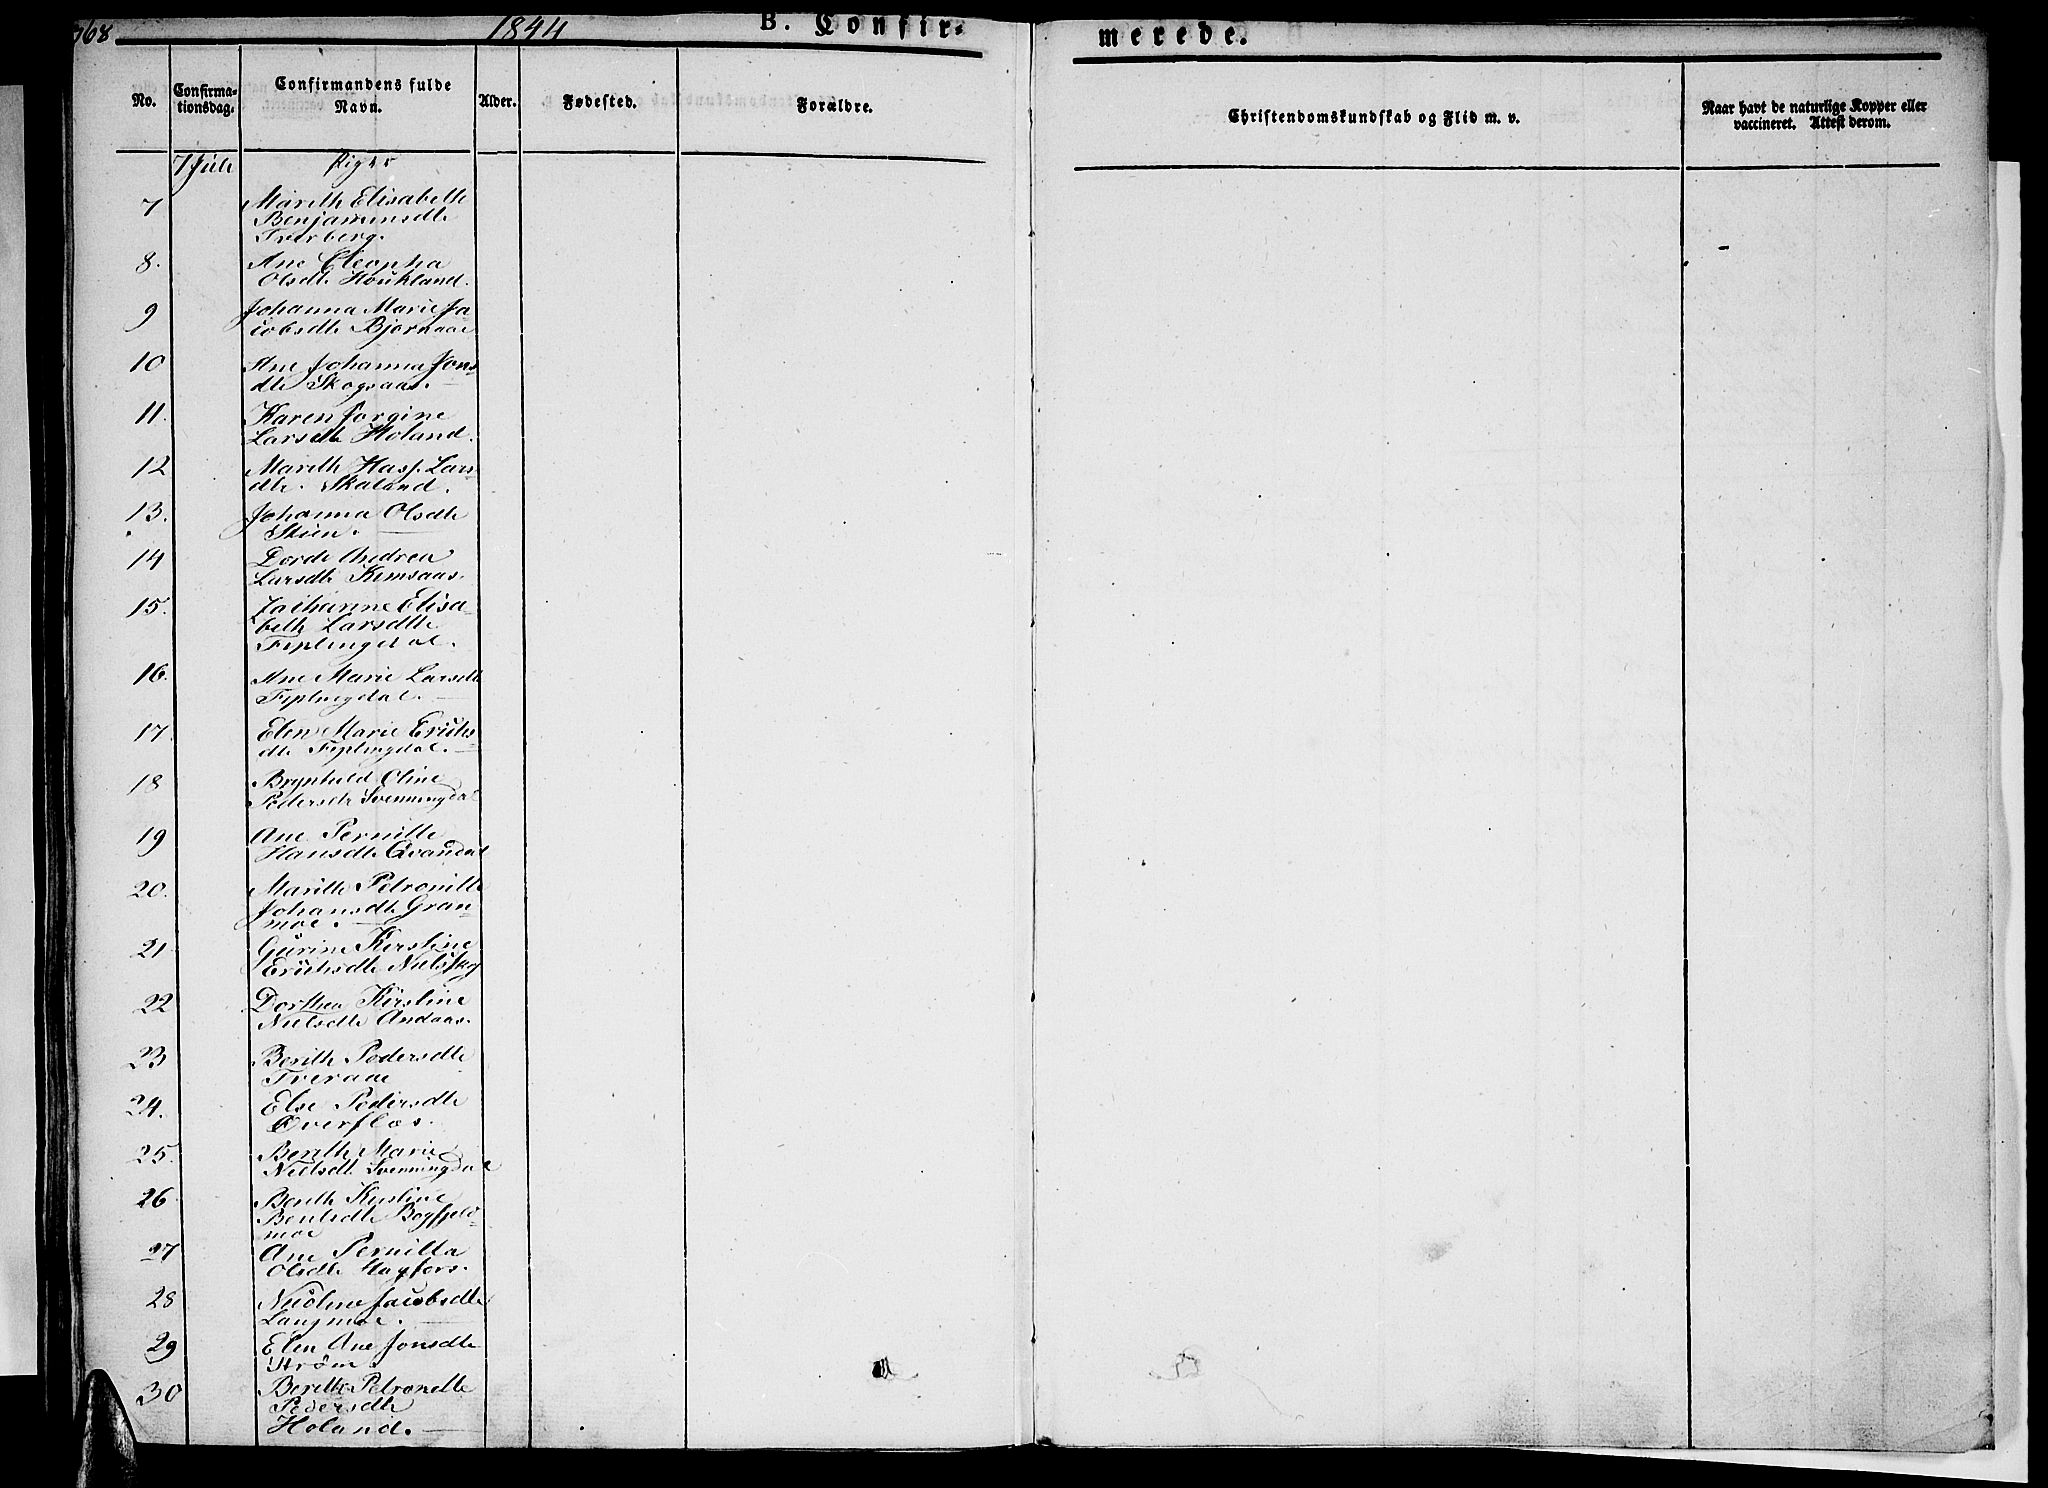 368
1844
B. Confir-
merede.
No.
Confirma-
tionsdag.
Confirmandens fulde
Navn.
Alder.
Fødested.
Forældre.
Christendomskundskab og Flid m. v.
Naar havt de naturlige Kopper eller
vaccineret. Attest derom.
7 Juli
Piger
7 Mareth Elisabeth
Benjaminsdt
Tverberg.
8. Ane Cleopha
Olsdt Houkland.
9 Johanna Marie Ja
cobsdt Bjornaae
10 Ane Johanna Jons
dt Skogsaas.
11. Karen Jorgine
Larsdt Holand.
12 Mareth Hasf. Lars
dt. Skaland.
13. Johanna Olsdt
Stien.
14 Dordt Andrea
Larsdt Kemsaas.
15. Zachrine Elisa-
beth Larsdt
Fiplingdal.
16. Ane Marie Larsdt
Fiplingdal.
17. Elen Marie Erichs
dt Fiplingdal.
18 Brynhild Oline
Pedersdt Svenningdal
19 Ane Pernille
Hansdt Qvandal
20. Marith Petronille
Johansdt Gran-
moe.
21 Gurine Kirstine
Erichsdt Nielsskog
22 Dorthea Kirstine
Nielsdt Andaas.
23 Berith Pedersdt
Tveraae
24. Else Pedersdt
Overflos.
25. Berith Marie
Nielsdt Svenningdal
26 Berith Kirstine
Bentsdt Bogfjeld-
moe
27 Ane Pernilla
Olsdt Hagfors.
28 Nicoline Jacobsdt
Langmoe.
29 Elen Ane Jonsdt
Strøm.
30 Berith Petronelle
Pedersdt
Holand.